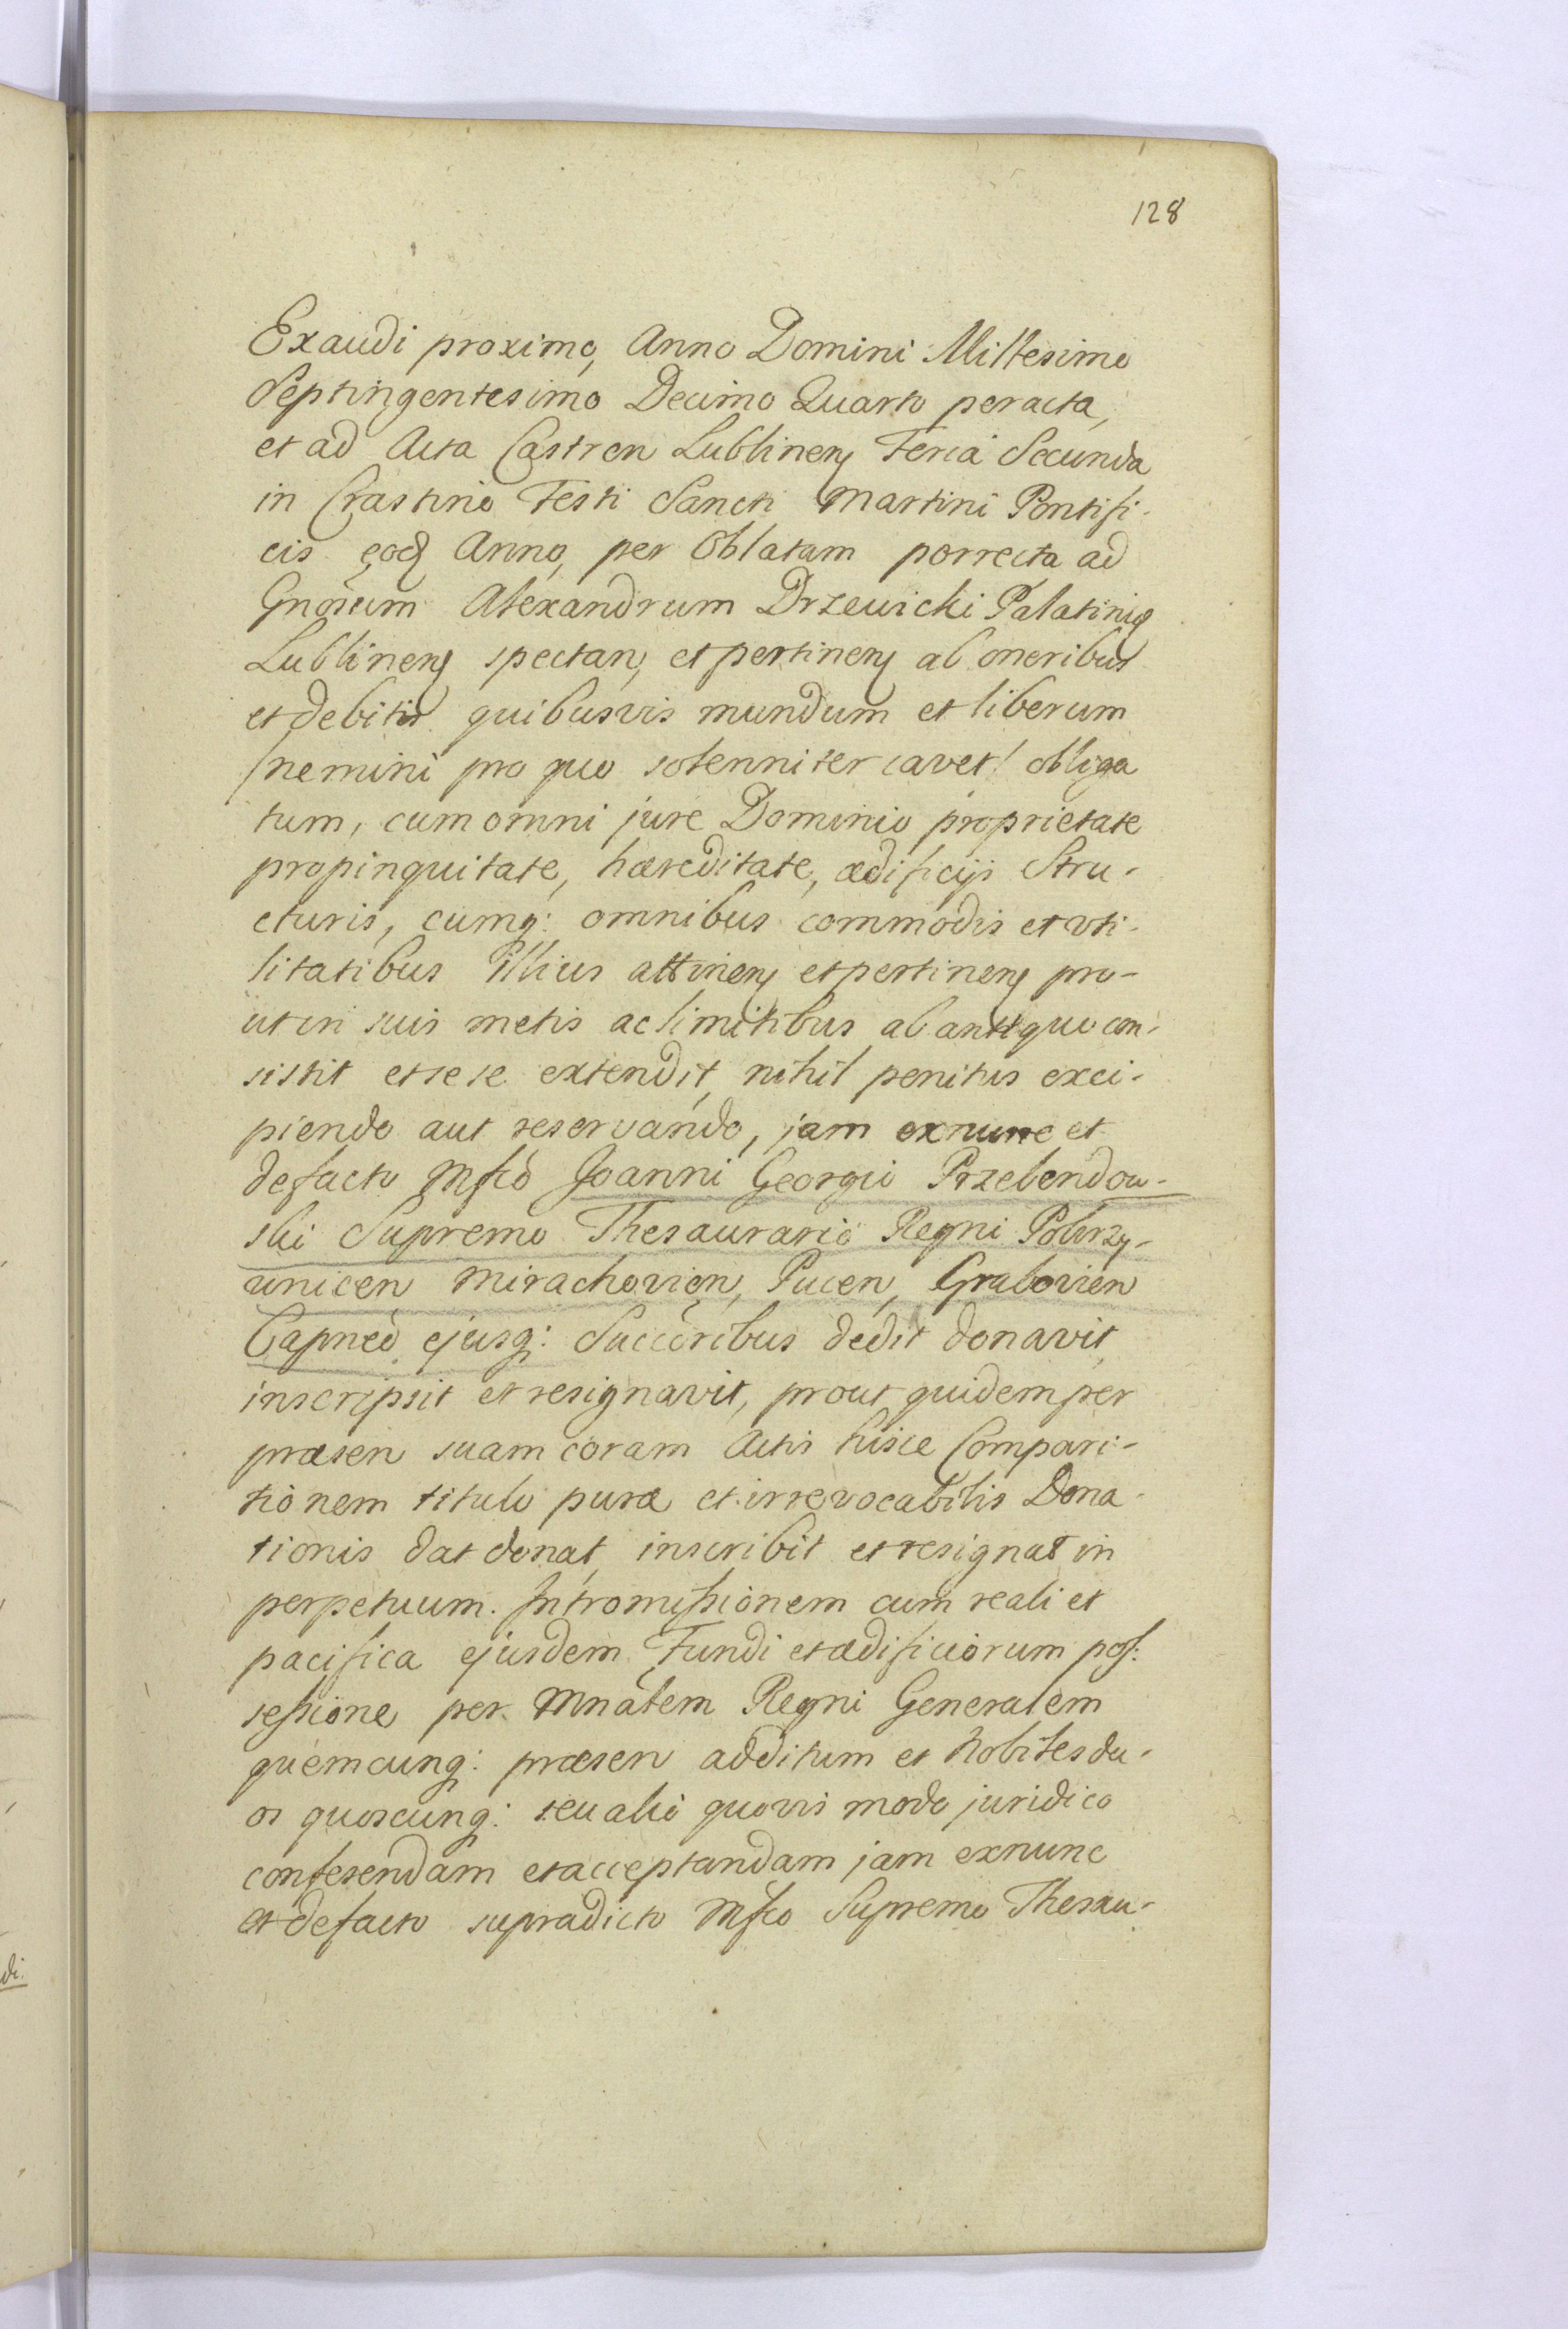 128
Exaudi proximo, Anno Domini Millesimo
Septingentesimo Decimo Quarto peracta,
et ad Acta Castren Lublinen Feria Secunda
in Crastino Festi Sancti Martini Pontifi-
cis eod Anno, per Oblatam porrecta ad
Gnosum Alexandrum Drzewicki Palatinid
Lublinen spectan, et pertinen ab oneribus
et debitis quibusvis mundum et liberum
/nemini pro quo solenniter cavet/ obliga
tum, cum omni jure Dominio proprietate
propinquitate, hæreditate, ædificijs Stru-
cturis, cumq: omnibus commodis et vti-
litatibus illius attinen et pertinen pro-
ut in suis metis ac limitibus ab antiquo con-
sistit et se se extendit, nihil penitus exci-
piendo aut reservando, jam exnunc et
defacto Mfco Joanni Georgio Przebendow-
ski Supremo Thesaurario Regni
unicen Mirachovien, Pucen, Grabovien
Capneo ejusq: Succoribus dedit donavit,
inscripsit et resignavit, prout quidem per
præsen suam coram Actis hisce Compari-
tionem titulo puræ et irrevocabilis Dona-
tionis dat donat, inscribit et resignat in
perpetuum. Intromissionem cum reali et
pacifica ejusdem Fundi et ædificiorum pos:
sessione per Mnalem Regni Generalem
quemcunq: præsen additum et Nobiles du-
os quoscunq: seu alio quovis modo juridico
conferendam et acceptandam jam exnunc
et defacto supradicto Mfco Supremo Thesau-
di.